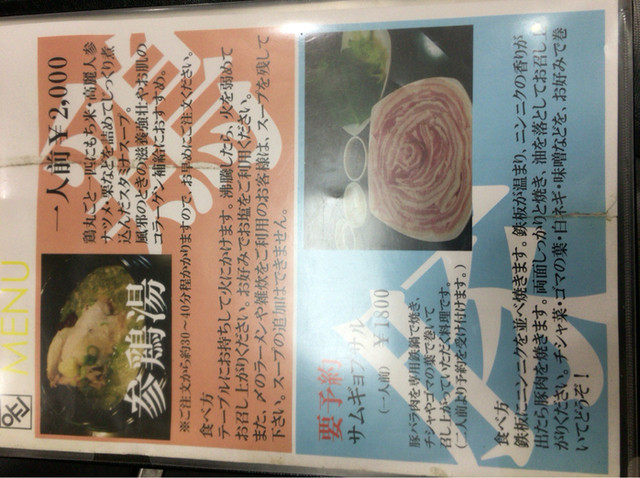 MENU
参鶏湯
一人前￥2,000
鶏丸ごと一匹にもち米・高麗人参
ナツメ・栗などを詰めてじっくり煮
込んだスタミナスープ。
風邪のときの滋養強壮やお肌の
コラーゲン補給におすすめ。
※ご注文から約30～40分程かかりますので、お早めにご注文ください。
食べ方
テーブルにお持ちして火にかけます。沸騰したら、火を弱めて
お召し上がりください。お好みでお塩をご利用ください。
また、〆のラーメンや雑炊をご利用のお客様は、スープを残して
下さい。スープの追加はできません。
要予約
サムギョプサル
（一人前）　￥1800
豚バラ肉を専用鉄鍋で焼き、
チシャやゴマの葉で巻いて
召し上がっていただく料理です。
（二人前より予約を受け付けます。）
食べ方
鉄板にニンニクを並べ焼きます。鉄板が温まり、ニンニクの香りが
出たら豚肉を焼きます。両面しっかりと焼き、油を落としてお召し上
がりください。チシャ菜・ゴマの葉・白ネギ・味噌などを、お好みで巻
いてどうぞ！